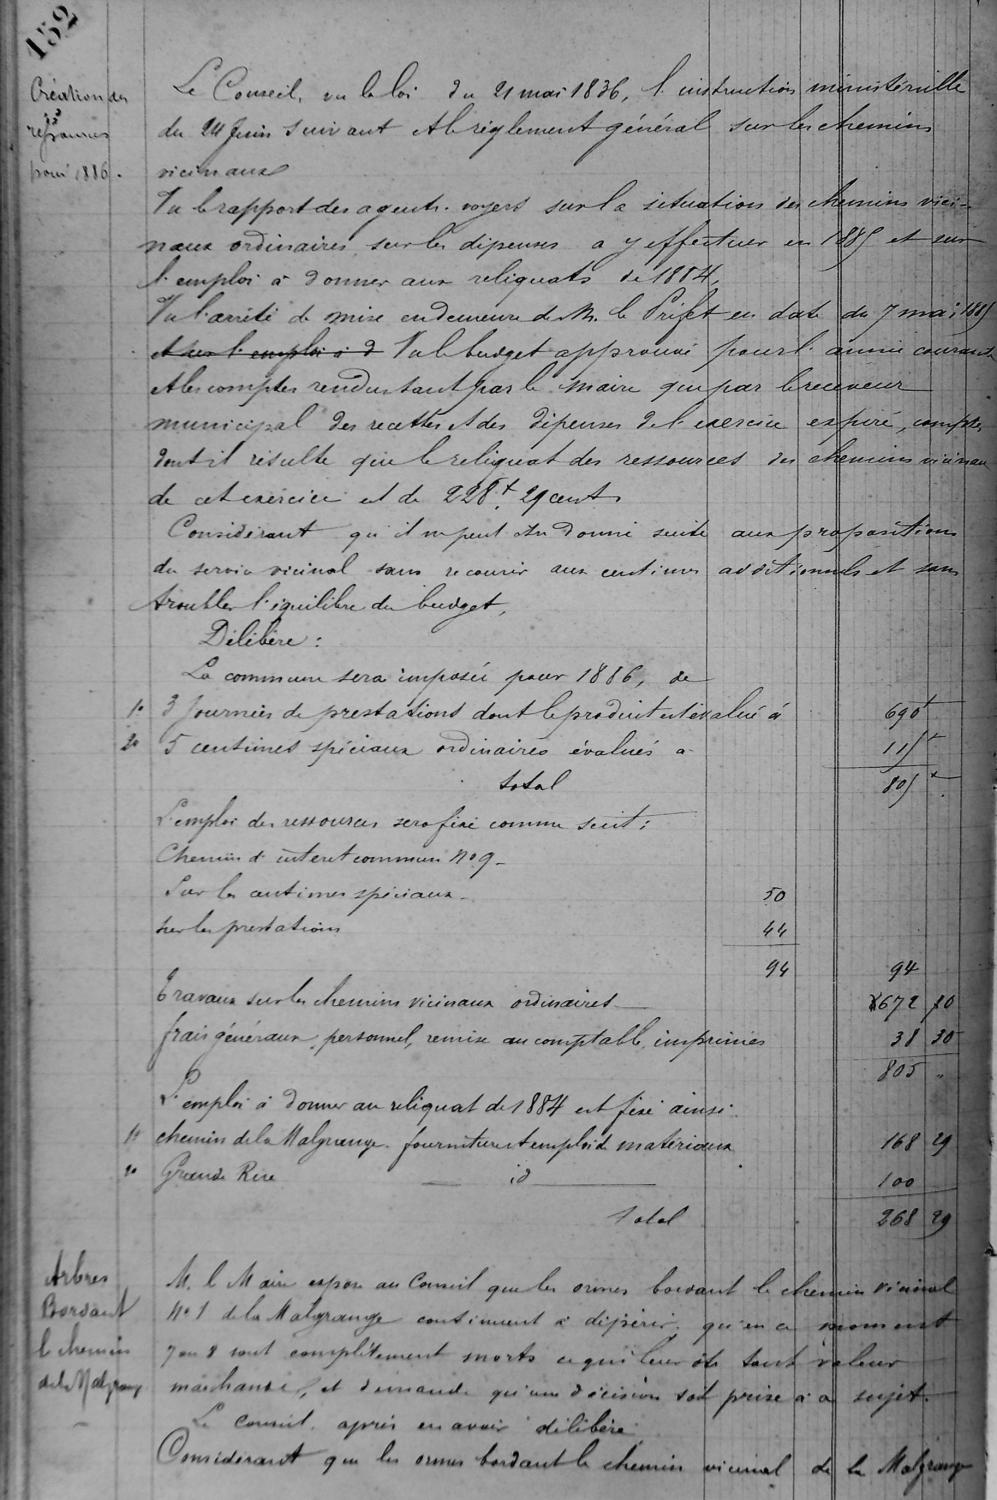 152
Création des
ressources
pour 1886.
Le Conseil, vu la loi du 21 mai 1836, l'instruction ministérielle
du 24 Juin suivant et le règlement général sur les chemins
vicinaux
Vu le rapport des agents-voyers sur la situation des chemins vici-
naux ordinaires, sur les dépenses a y effectuer en 1885 et sur
l'emploi à donner aux reliquats de 1884,
Vu l'arrêté de mise en demeure de M. le Préfet en date du 7 mai 1885
et sur l'emploi à d Vu le budget approuvé pour l'année courante
et les comptes rendus tant par le Maire que par le receveur
municipal des recettes et des dépenses de l'exercice expiré, comptes
dont il résulte que le reliquat des ressources des chemins vicinaux
de cet exercice et de 228f. 29 cent.
Considérant qu'il ne peut être donné suite aux propositions
du service vicinal sans recourir aux centimes additionnels et sans
troubler l'équilibre du budget,
Délibère :
La commune sera imposée pour 1886, de
1º 3 Journées de prestations dont le produit est évalué à 690f
2º 5 centimes spéciaux ordinaires évalués a 115f
total 805f
L'emploi des ressources sera fixé comme suit :
Chemin d'interet commun Nº 9 -
Sur les centimes spéciaux - 50
sur les prestations 44
94 94
Travaux sur les chemins vicinaux ordinaires 672 70
frais généraux, personnel, remise au comptable, imprimés 38 30
805 "
L'emploi à donner au reliquat de 1884 est fixé ainsi.
1º chemin de la Malgrange. fourniture et emploi de matériaux 168 29
2º Grande Rue id 100
Total 268 29
Arbres
Bordant
le chemin
de la Malgrange
M. le Maire expose au Conseil que les ormes bordant le chemin vicinal
Nº 1 de la Malgrange continuent à dépérir, qu'en ce moment
7 ou 8 sont complètement morts ce qui leur ôte toute valeur
marchande, et demande qu'une décision soit prise à ce sujet.
Le conseil, après en avoir délibéré
Considérant que les ormes bordant le chemin vicinal de la Malgrange